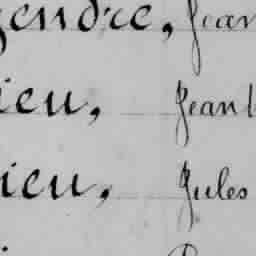 gendre, Jean
ieu, Jean
ieu, Jules